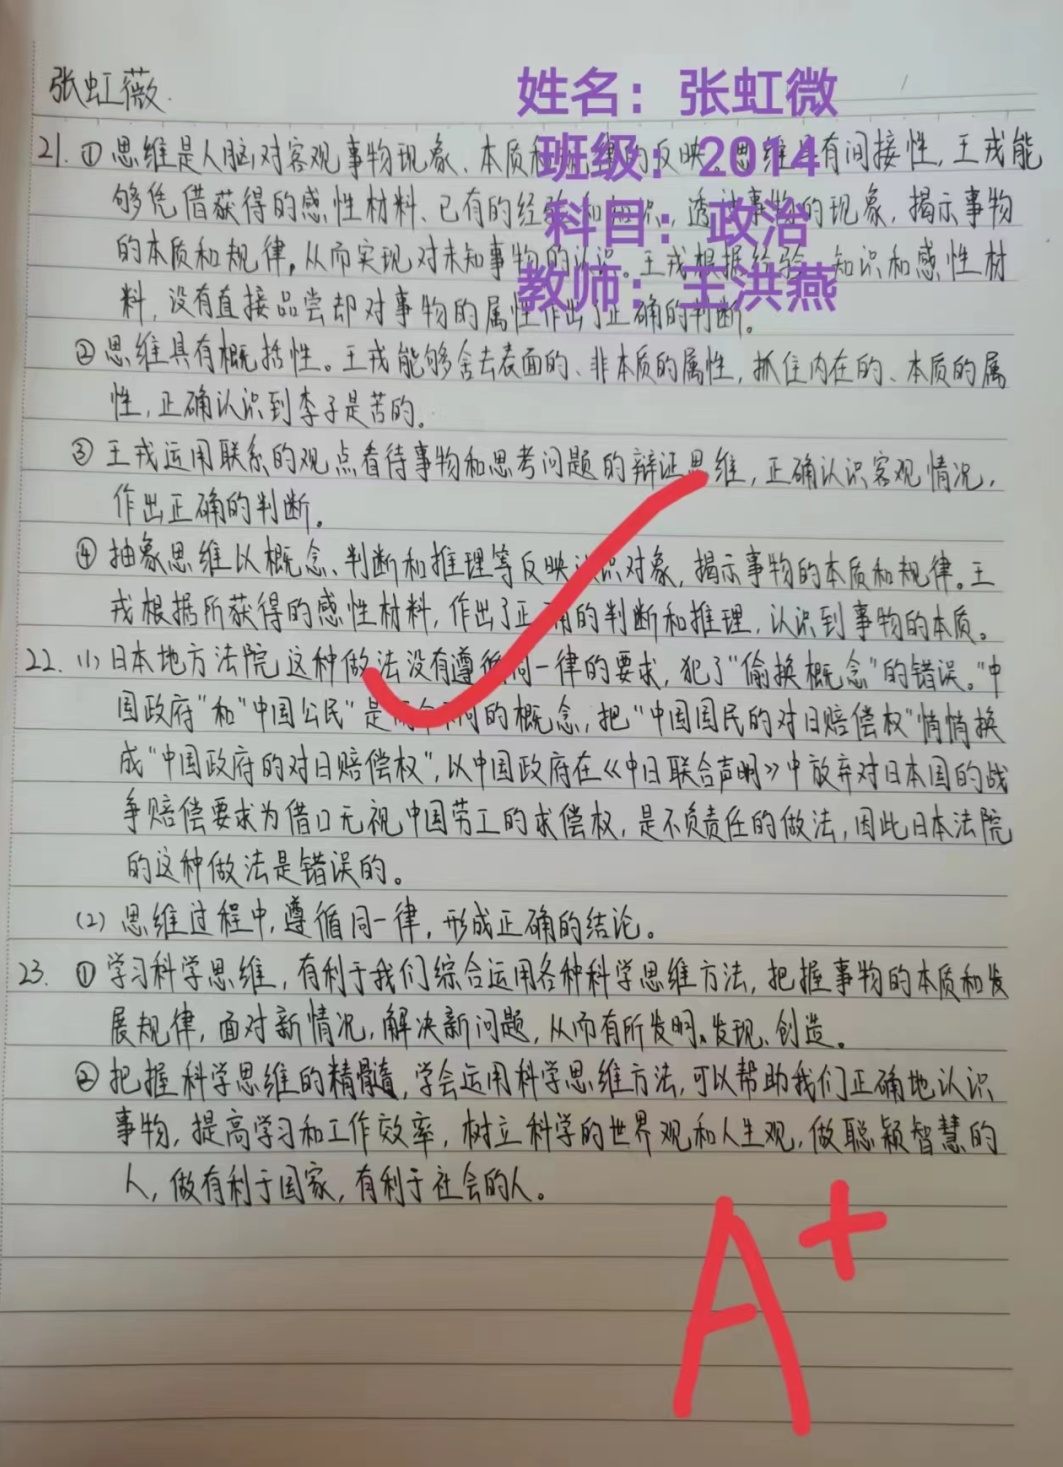 张虹薇.
姓名：张虹微
班级：2014
科目：政治
教师：王洪燕
21. ① 思维是人脑对客观事物现象、本质和反映 有间接性,王戎能
够凭借获得的感性材料、已有的经验和知识,透过事物的现象,揭示事物
的本质和规律,从而实现对未知事物的认识。王戎根据经验、知识和感性材
料,没有直接品尝却对事物的属性作出了正确的判断。
② 思维具有概括性。王戎能够舍去表面的、非本质的属性,抓住内在的、本质的属
性,正确认识到李子是苦的。
③ 王戎运用联系的观点看待事物和思考问题的辩证思维,正确认识客观情况,
作出正确的判断。
④ 抽象思维以概念、判断和推理等反映认识对象,揭示事物的本质和规律。王
戎根据所获得的感性材料,作出了正确的判断和推理,认识到事物的本质。
22. (1) 日本地方法院这种做法没有遵循同一律的要求,犯了“偷换概念”的错误。“中
国政府”和“中国公民”是两个不同的概念,把“中国国民的对日赔偿权”悄悄换
成“中国政府的对日赔偿权”,以中国政府在《中日联合声明》中放弃对日本国的战
争赔偿要求为借口无视中国劳工的求偿权,是不负责任的做法,因此日本法院
的这种做法是错误的。
(2) 思维过程中,遵循同一律,形成正确的结论。
23. ① 学习科学思维,有利于我们综合运用各种科学思维方法,把握事物的本质和发
展规律,面对新情况,解决新问题,从而有所发明、发现、创造。
② 把握科学思维的精髓,学会运用科学思维方法,可以帮助我们正确地认识
事物,提高学习和工作效率,树立科学的世界观和人生观,做聪颖智慧的
人,做有利于国家,有利于社会的人。
A+